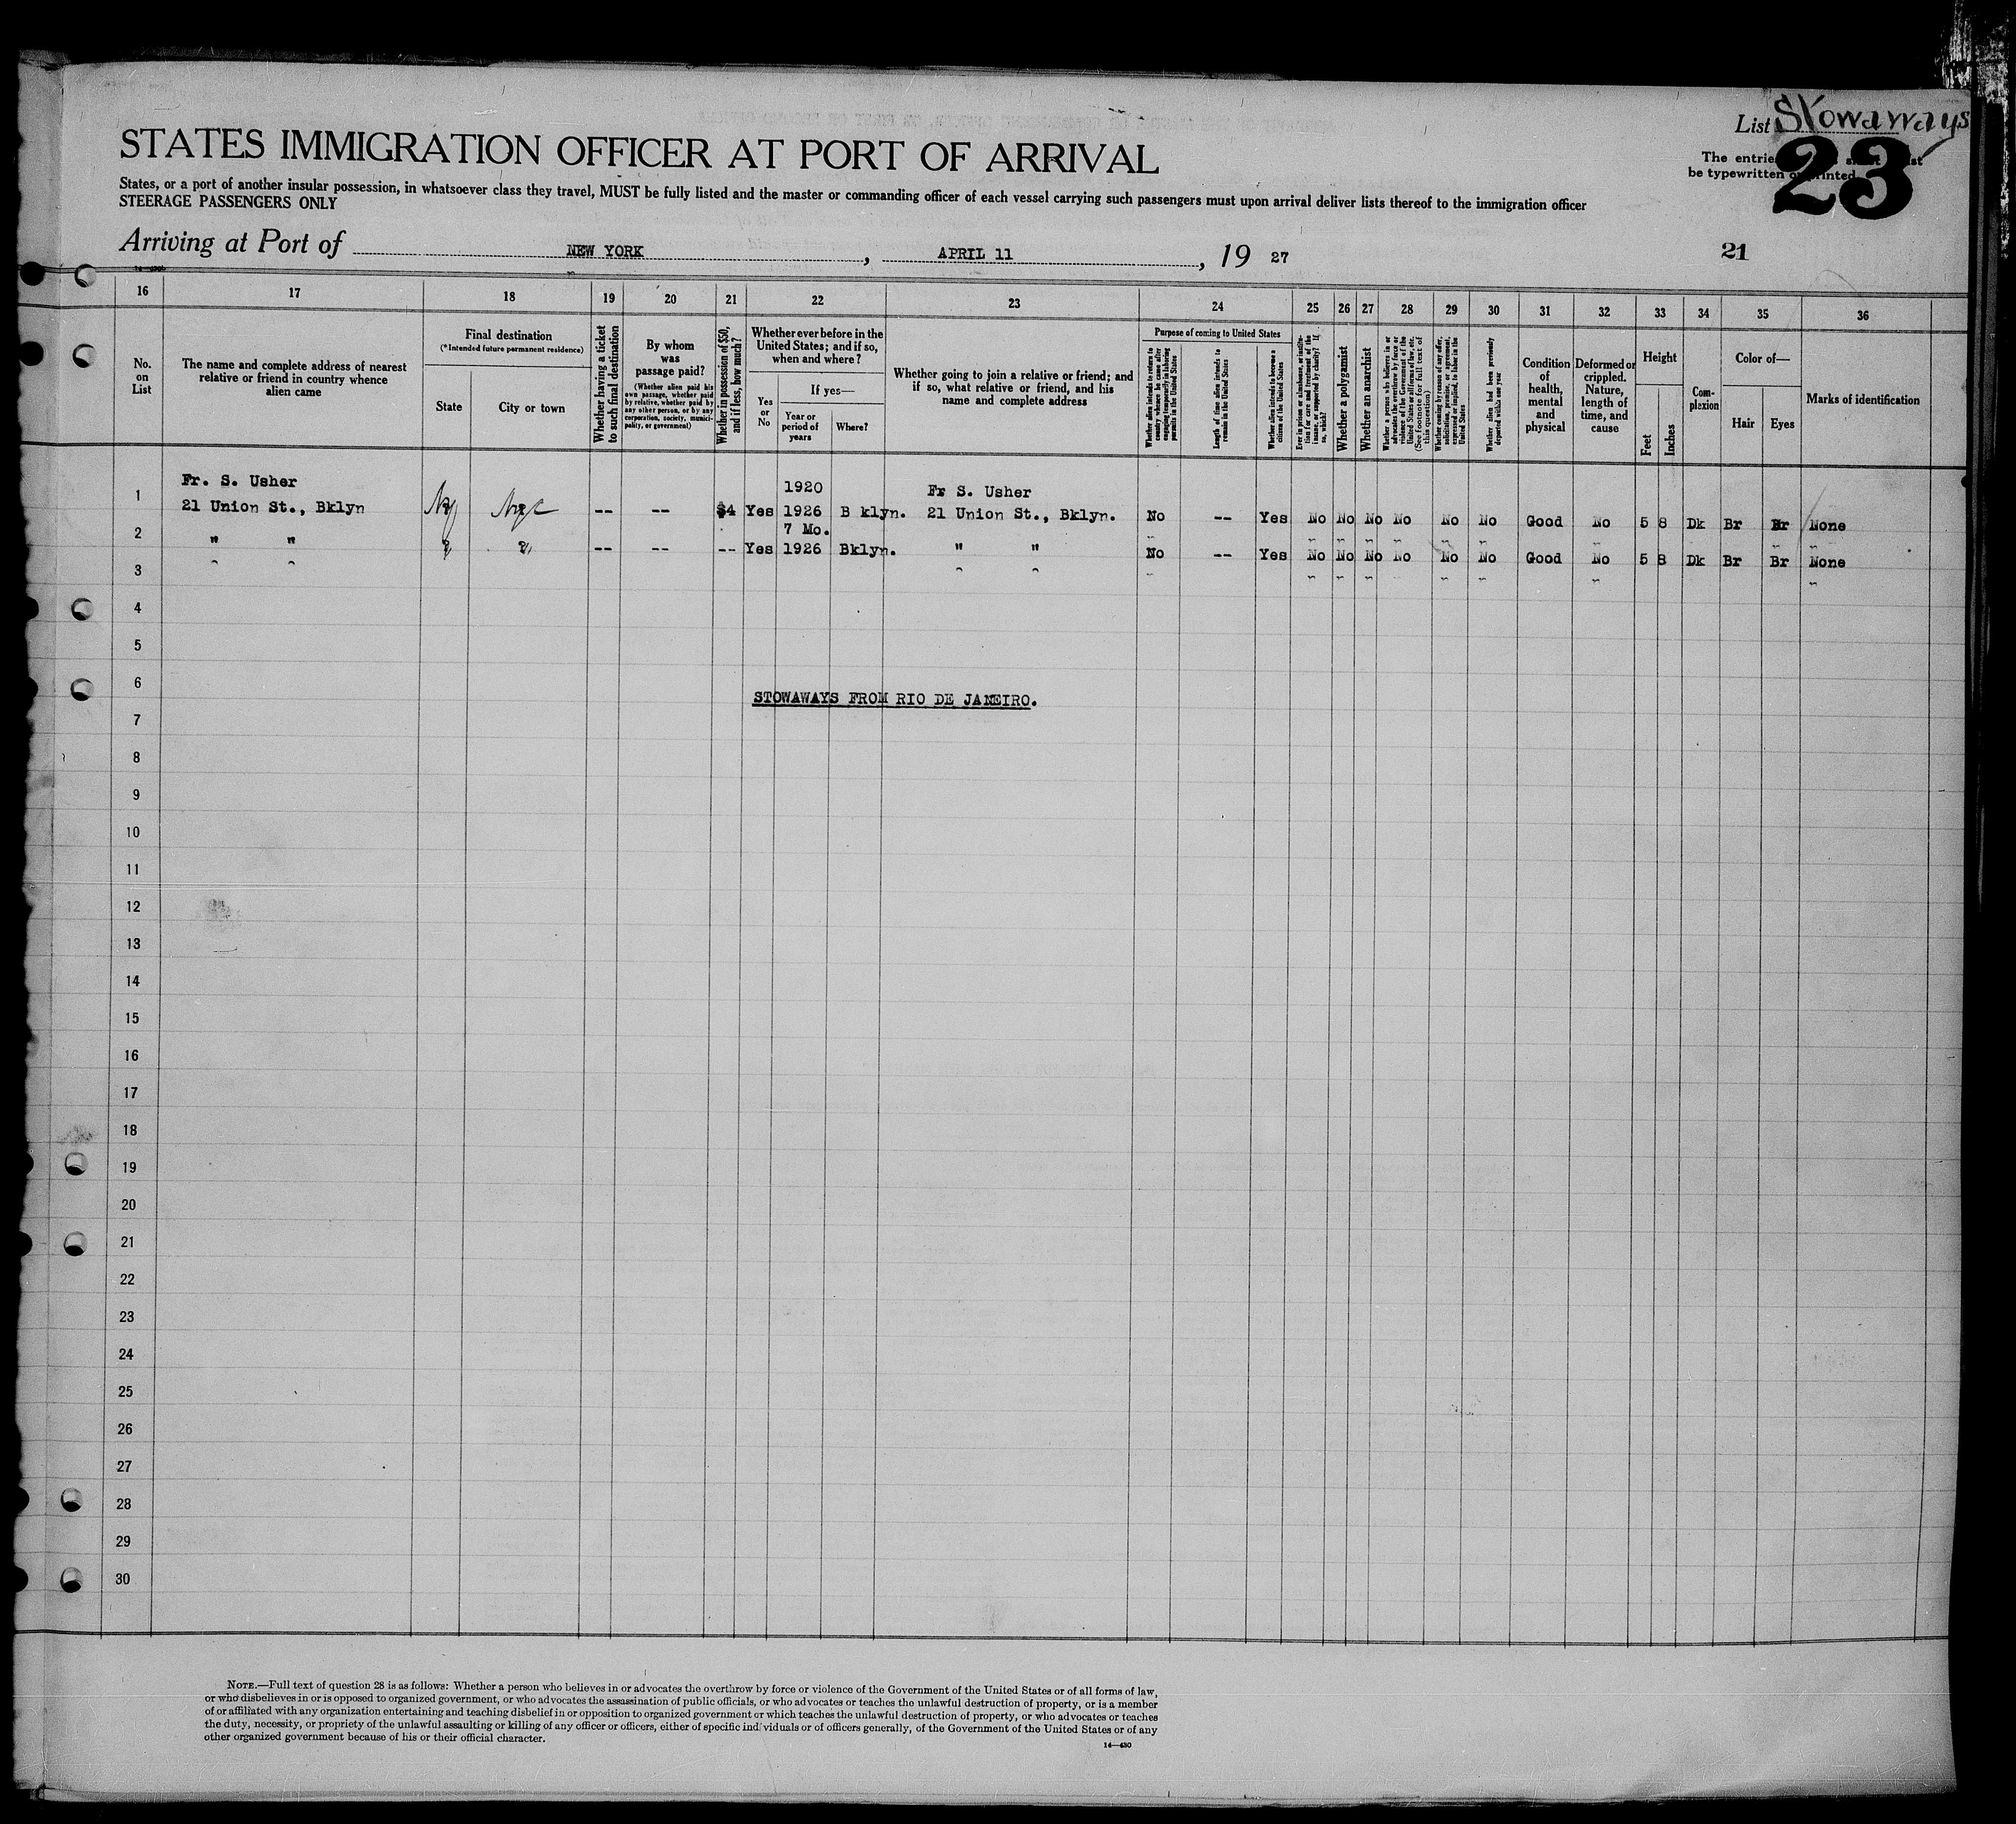 List Stowaways
STATES IMMIGRATION OFFICER AT PORT OF ARRIVAL
The entries
be typewritten or printed
23
States, or a port of another insular possession, in whatsoever class they travel, MUST be fully listed and the master or commanding officer of each vessel carrying such passengers must upon arrival deliver lists thereof to the immigration officer
STEERAGE PASSENGERS ONLY
Arriving at Port of NEW YORK, APRIL 11, 19 27
21
16 17 18 19 20 21 22 23 24 25 26 27 28 29 30 31 32 33 34 35 36
No. on List
The name and complete address of nearest relative or friend in country whence alien came
Final destination
(*Intended future permanent residence)
State
City or town
Whether having a ticket to such final destination
By whom was passage paid?
(Whether alien paid his own passage, whether paid by relative, whether paid by any other person, or by any corporation, society, municipality, or government)
Whether in possession of $50, and if less, how much?
Whether ever before in the United States; and if so, when and where?
Yes or No
If yes—
Year or period of years
Where?
Whether going to join a relative or friend; and if so, what relative or friend, and his name and complete address
Purpose of coming to United States
Whether alien intends to return to country whence he came after engaging temporarily in laboring pursuits in the United States
Length of time alien intends to remain in the United States
Whether alien intends to become a citizen of the United States
Ever in prison or almshouse, or institution for care and treatment of the insane, or supported by charity? If so, which?
Whether a polygamist
Whether an anarchist
Whether a person who believes in or advocates the overthrow by force or violence of the Government of the United States or all forms of law, etc. (See footnote for full text of this question)
Whether coming by reason of any offer, solicitation, promise, or agreement, expressed or implied, to labor in the United States
Whether alien had been previously deported within one year
Condition of health, mental and physical
Deformed or crippled. Nature, length of time, and cause
Height
Feet
Inches
Complexion
Color of—
Hair
Eyes
Marks of identification
1 Fr. S. Usher 1920 Fr S. Usher
21 Union St., Bklyn -- -- $4 Yes 1926 B klyn. 21 Union St., Bklyn. No -- Yes No No No No No No Good No 5 8 Dk Br Br None
7 Mo.
2 " " -- -- -- Yes 1926 Bklyn. " " No -- Yes No No No No No No Good No 5 8 Dk Br Br None
3
4
5
6
STOWAWAYS FROM RIO DE JANEIRO.
7
8
9
10
11
12
13
14
15
16
17
18
19
20
21
22
23
24
25
26
27
28
29
30
NOTE.—Full text of question 28 is as follows: Whether a person who believes in or advocates the overthrow by force or violence of the Government of the United States or of all forms of law,
or who disbelieves in or is opposed to organized government, or who advocates the assassination of public officials, or who advocates or teaches the unlawful destruction of property, or is a member
of or affiliated with any organization entertaining and teaching disbelief in or opposition to organized government or which teaches the unlawful destruction of property, or who advocates or teaches
the duty, necessity, or propriety of the unlawful assaulting or killing of any officer or officers, either of specific individuals or of officers generally, of the Government of the United States or of any
other organized government because of his or their official character.
14—430